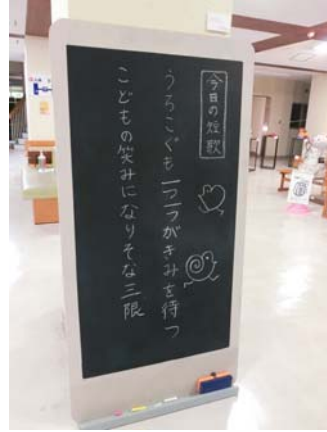 今日の短歌
うろこぐも一つ一つがきみを待つ
こどもの笑みになりそな三限